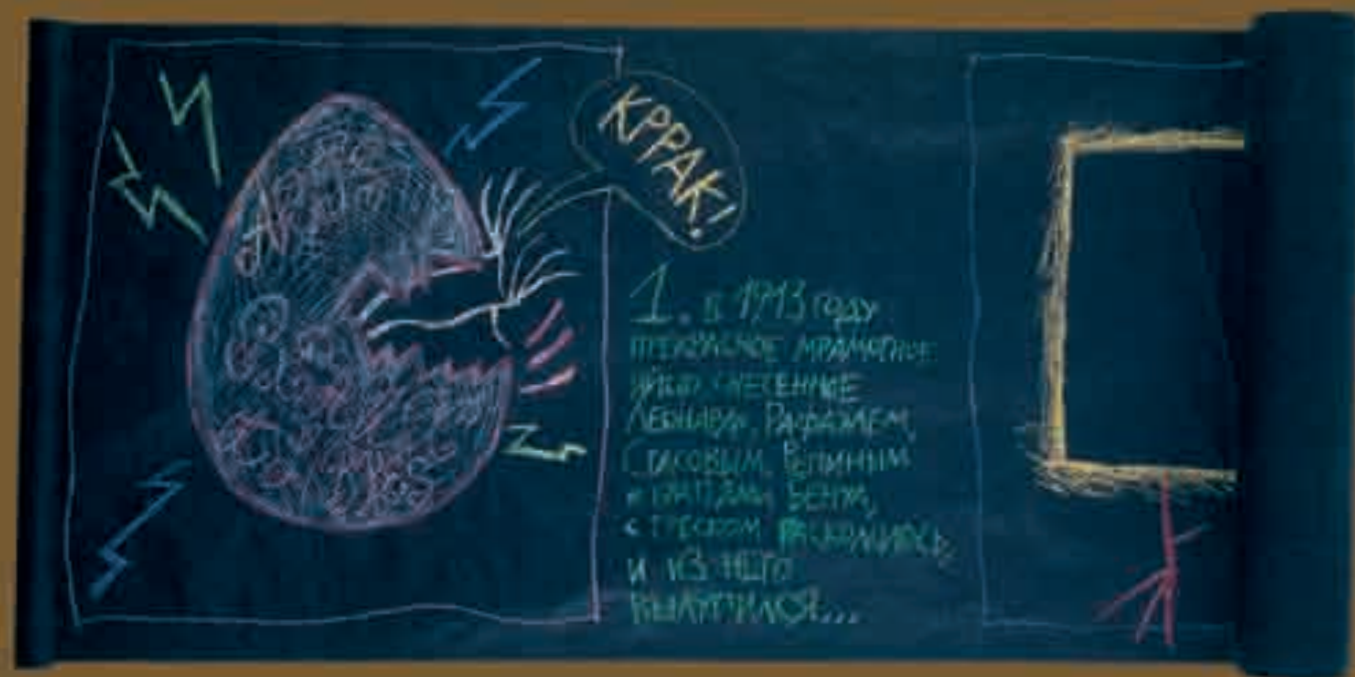 КРРАК!
1. В 1913 году
прекрасное мраморное
яйцо, снесенное
Леонардо, Рафаэлем,
Стасовым, Репиным
и Бенуа,
с треском раскололось,
и из него
вылупился...